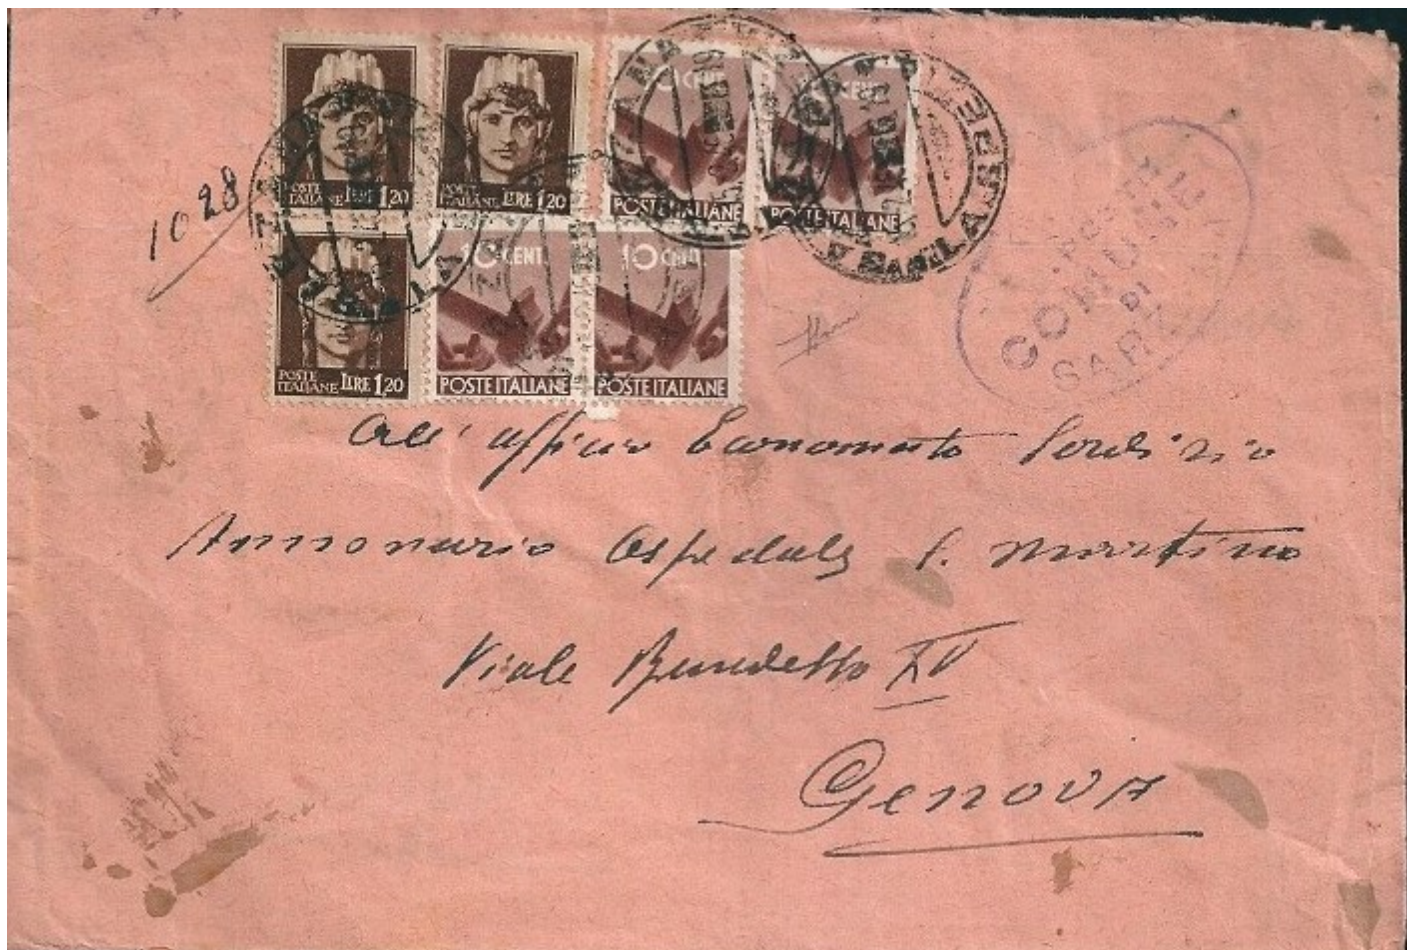 POSTE ITALIANE LIRE 1,20
POSTE ITALIANE LIRE 1,20
10 CENT. POSTE ITALIANE
CENT. POSTE ITALIANE
POSTE ITALIANE LIRE 1,20
10 CENT. POSTE ITALIANE
10 CENT. POSTE ITALIANE
10 28
COMUNE
DI
SARZ
All' ufficio Economato Servizio
Annonario Ospedale S. Martino
Viale Benedetto XV
Genova